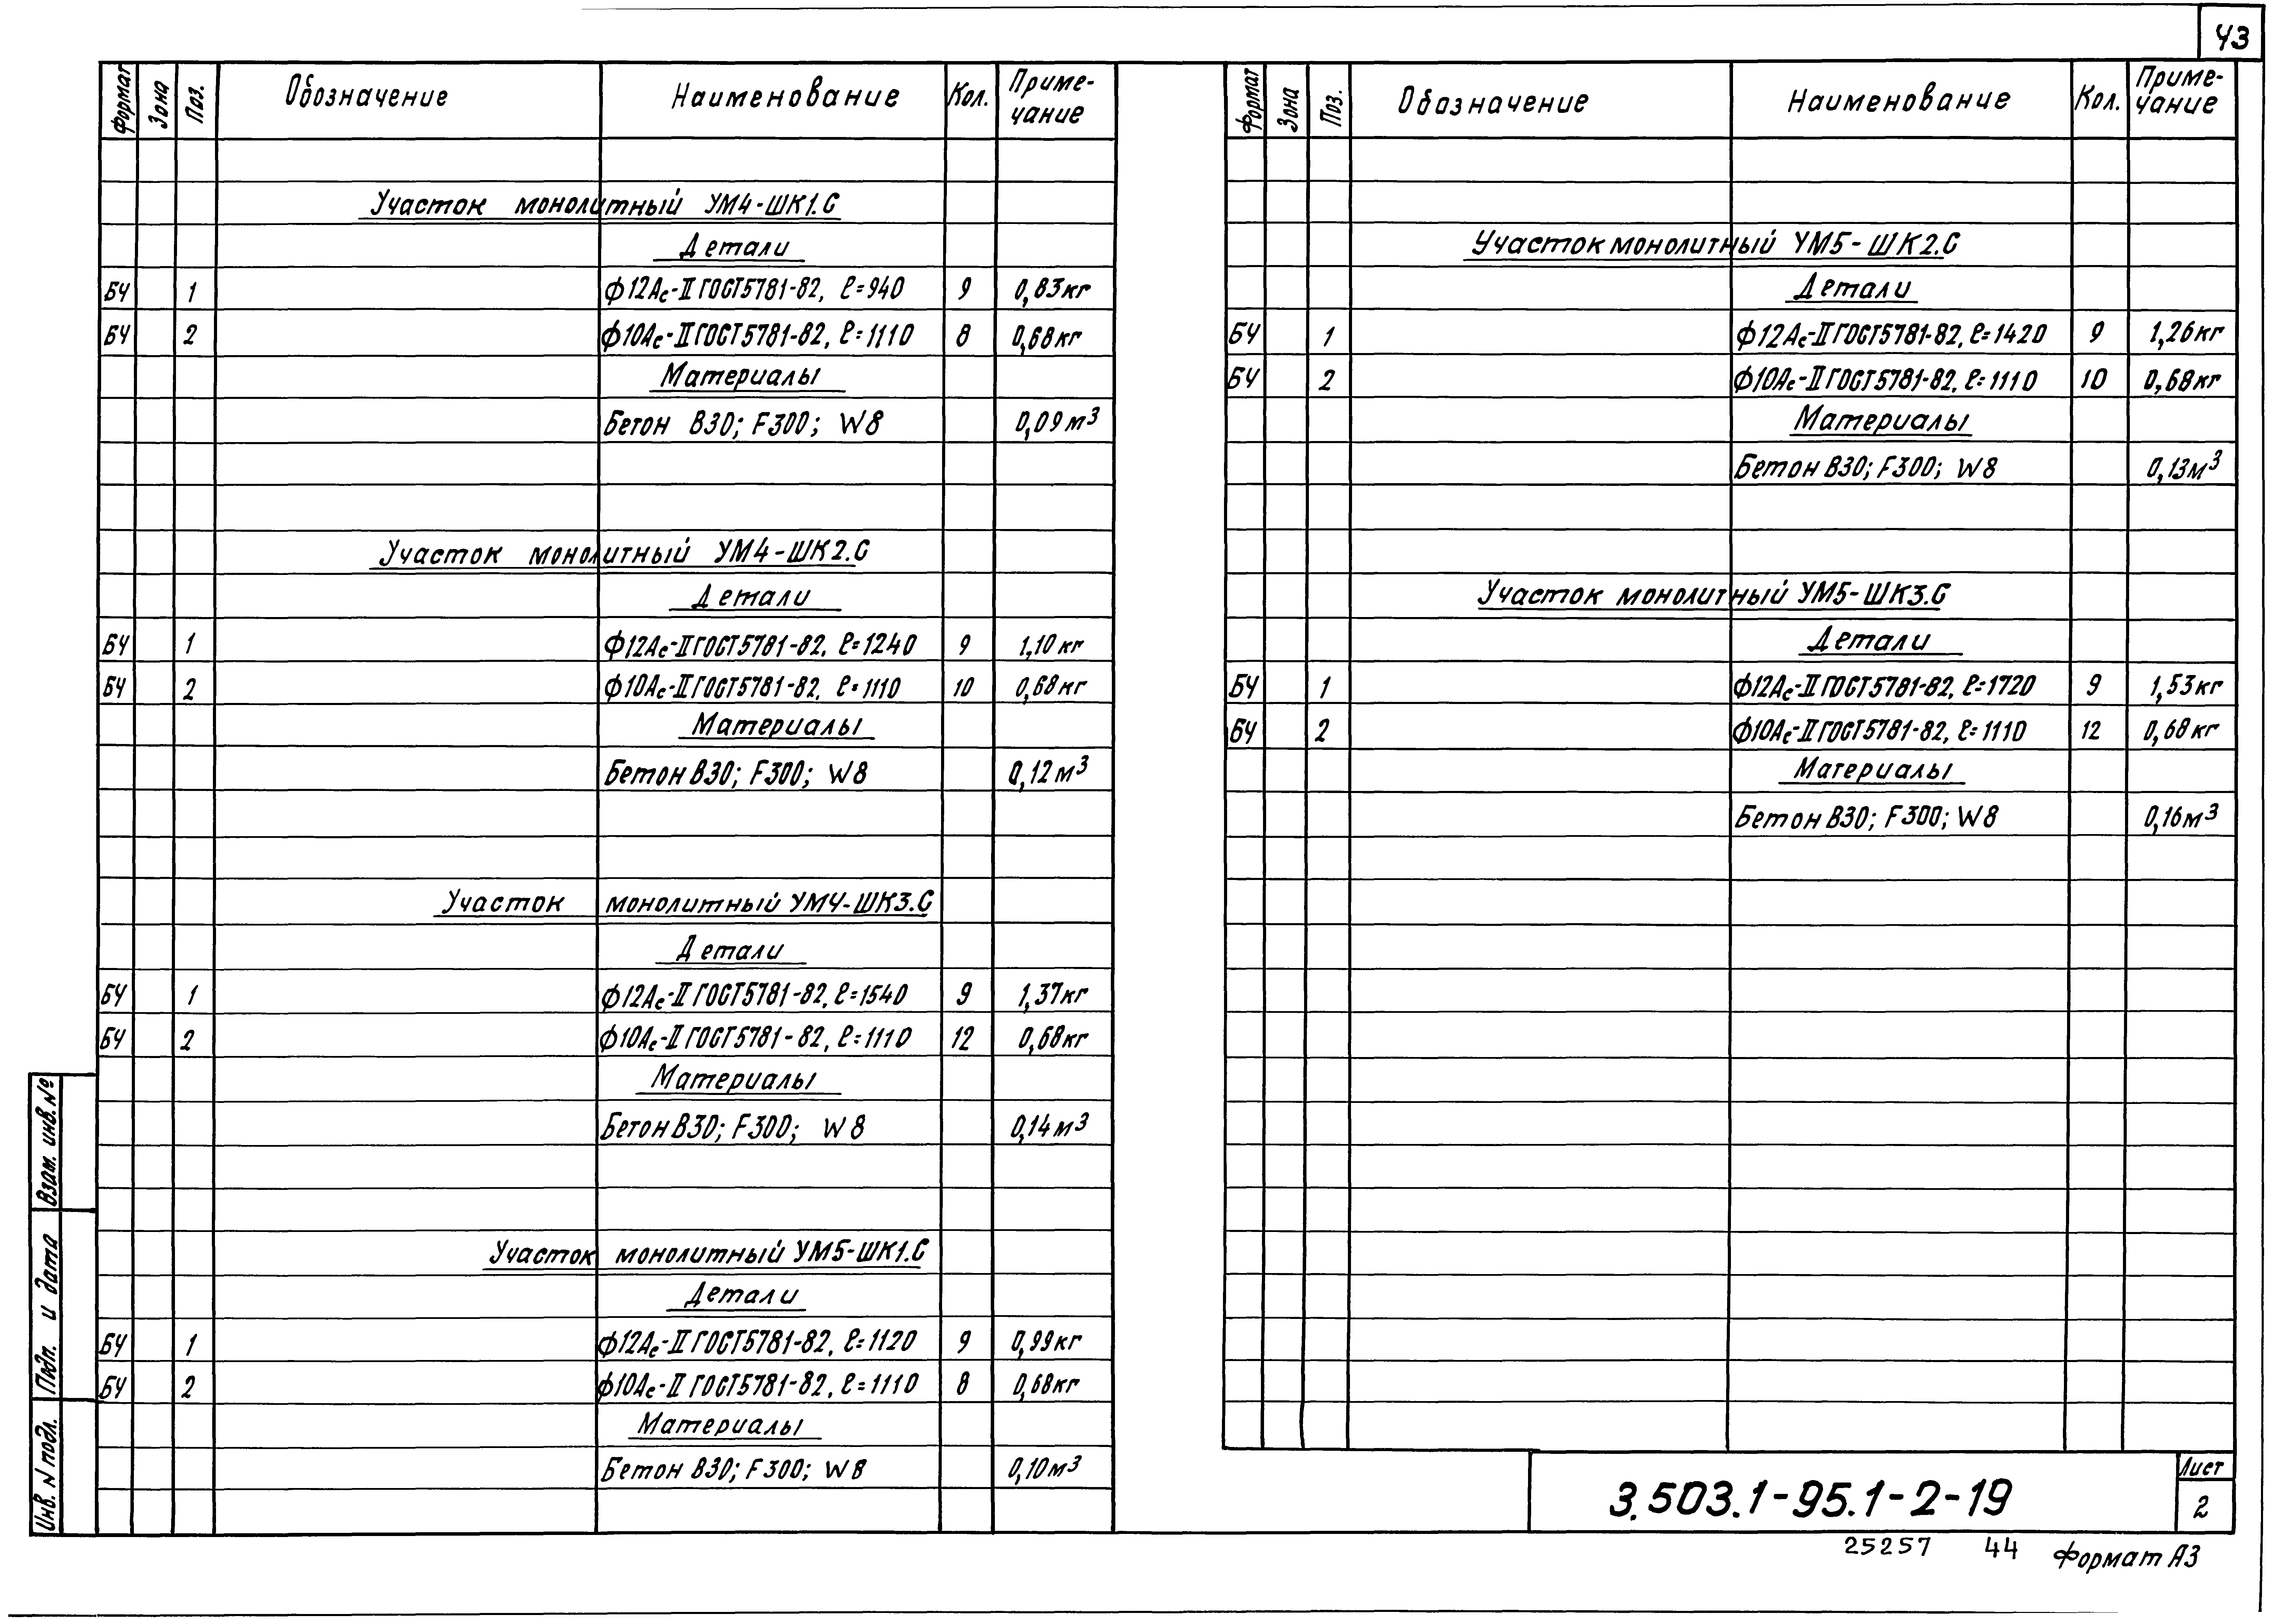 43
Формат Зона Поз. Обозначение Наименование Кол. Приме-
чание
Участок монолитный УМ4-ШК1.С
Детали
БЧ 1 ф12Ас-II ГОСТ5781-82, ℓ=940 9 0,83кг
БЧ 2 ф10Ас-II ГОСТ5781-82, ℓ=1110 8 0,68кг
Материалы
Бетон В30; F300; W8 0,09м³
Участок монолитный УМ4-ШК2.С
Детали
БЧ 1 ф12Ас-II ГОСТ5781-82, ℓ=1240 9 1,10кг
БЧ 2 ф10Ас-II ГОСТ5781-82, ℓ=1110 10 0,68кг
Материалы
Бетон В30; F300; W8 0,12м³
Участок монолитный УМ4-ШК3.С
Детали
БЧ 1 ф12Ас-II ГОСТ5781-82, ℓ=1540 9 1,37кг
БЧ 2 ф10Ас-II ГОСТ5781-82, ℓ=1110 12 0,68кг
Материалы
Бетон В30; F300; W8 0,14м³
Участок монолитный УМ5-ШК1.С
Детали
БЧ 1 ф12Ас-II ГОСТ5781-82, ℓ=1120 9 0,99кг
БЧ 2 ф10Ас-II ГОСТ5781-82, ℓ=1110 8 0,68кг
Материалы
Бетон В30; F300; W8 0,10м³
Формат Зона Поз. Обозначение Наименование Кол. Приме-
чание
Участок монолитный УМ5-ШК2.С
Детали
БЧ 1 ф12Ас-II ГОСТ5781-82, ℓ=1420 9 1,26кг
БЧ 2 ф10Ас-II ГОСТ5781-82, ℓ=1110 10 0,68кг
Материалы
Бетон В30; F300; W8 0,13м³
Участок монолитный УМ5-ШК3.С
Детали
БЧ 1 ф12Ас-II ГОСТ5781-82, ℓ=1720 9 1,53кг
БЧ 2 ф10Ас-II ГОСТ5781-82, ℓ=1110 12 0,68кг
Материалы
Бетон В30; F300; W8 0,16м³
Взам. инв. №
Подп. и дата
Инв. N подл.
3.503.1-95.1-2-19
Лист
2
25257 44 Формат А3